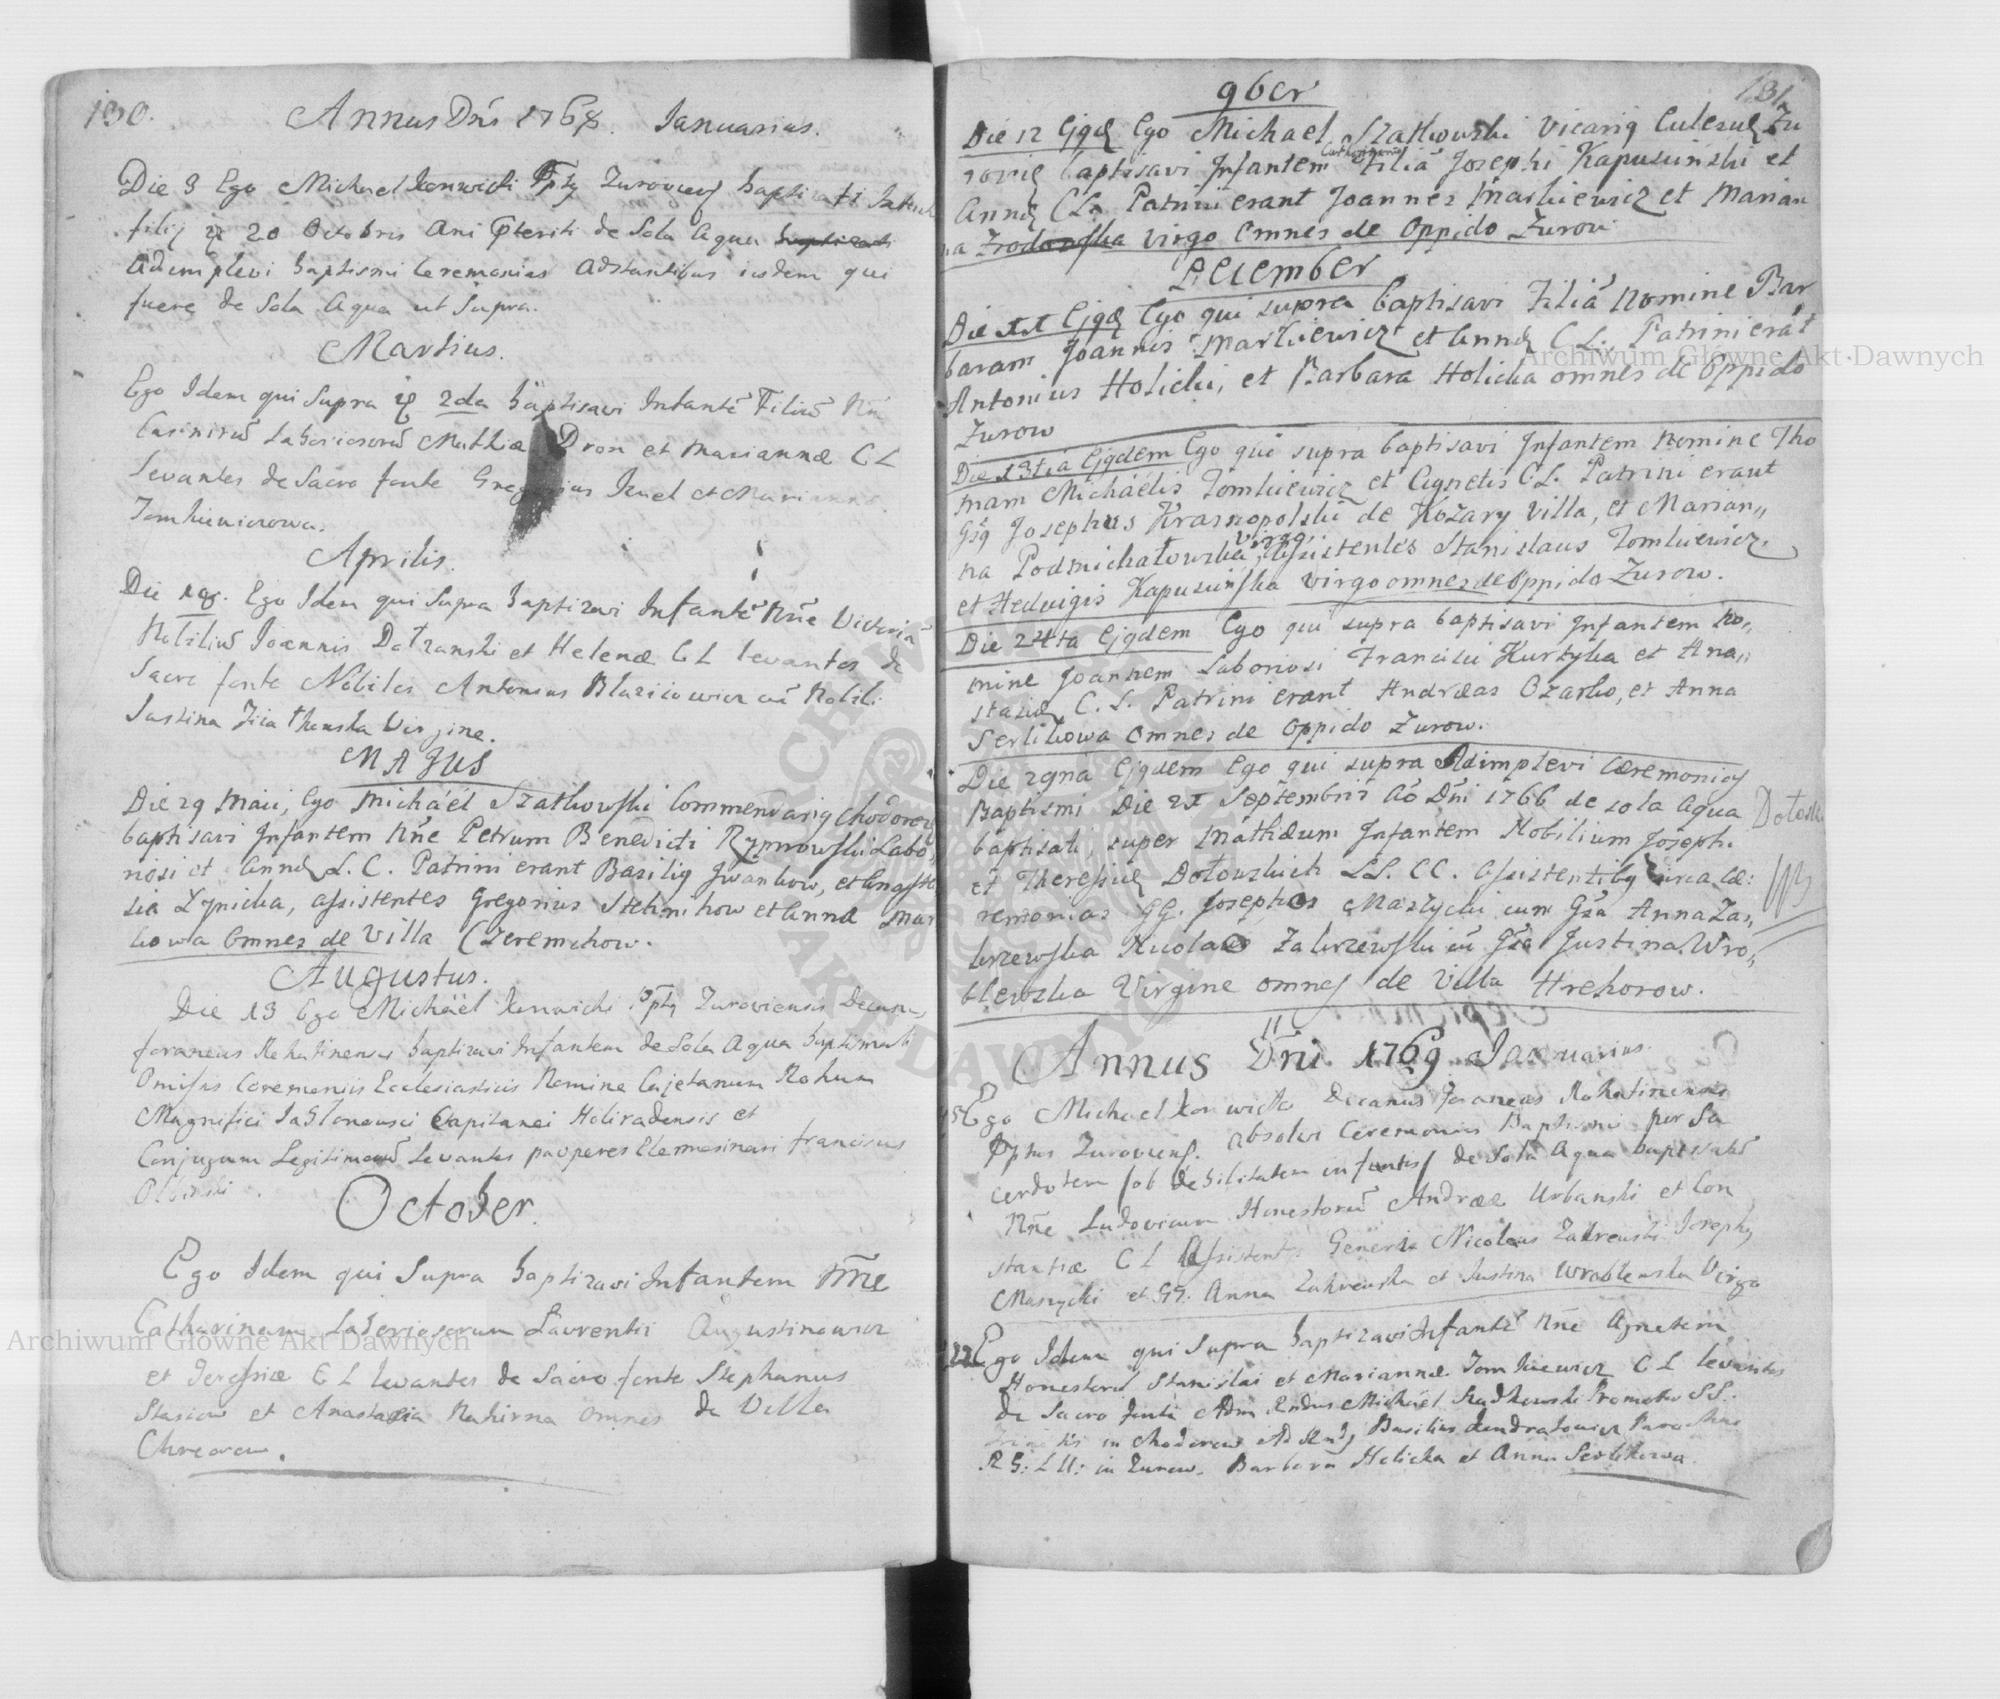 130.
Annus Dñi 1768. Januarius.
Die 3 Ego Michael Konwicki Ppts Zuroviens baptizati
filij 20 Octobris Ani de Sola Aqua
Adimplevi baptismi Ceremonias Adstantibus iisdem qui
fuere de Sola Aqua ut Supra.
Martius.
Ego Idem qui Supra 2da baptisavi Infantē Filiū Nñe
Casimirū Laboriosorū Mathiæ Dron et Mariannæ C L
Levantes de Sacro fonte Gregorius et Marianna
Tomkiewiczowa.
Aprilis.
Die Ego Idem qui Supra baptizavi Infantē Nñe Victoriā
Nobiliū Joannis et Helenæ C L levantes de
Sacro fonte Nobiles Antonius Blazieiowicz cū Nobili
Justina Virgine.
MAJUS
Die 29 Maii, Ego Michaël Szatkowski Commendarig
baptisavi Infantem Nñe Petrum Benedicti Labo
riosi et Annæ L. C. Patrini erant Basilig Jwankow, et
Zynicka, Assistentes Gregorius et Anna
kowa Omnes de Villa Czeremchow.
Augustus.
Die 13 Ego Michaël Konwicki Ppts Zuroviensis Decanus
foraneus Rohatinensis baptizavi Infantem de Sola Aqua
Omissis Ceremoniis Ecclesiasticis Nomine Cajetanum Rohum
Magnifici Capitanei et
Conjugum Legitimorū Levantes pauperes Franciscus
October.
Ego Idem qui Supra baptizavi Infantem Nñe
Catharinam Laboriosorum Laurentii Augustinowicz
et Teressiæ C L levantes de Sacro fonte Stephanus
et Anastasia Nahirna omnes de Villa
131
9ber
Die 12 Ejqd Ego Michael Szatkowski Vicarig Ecclesiæ Zu
roviæ baptisavi Infantem Filiā Josephi Kapusiński et
Annæ CL. Patrini erant Joannes Markiewicz et Marian
na Virgo Omnes de Oppido Zurow
December
Die Ejqd Ego qui supra baptisavi Filiā Nomine Bar
baram Joannis Markiewicz et Annæ C L. Patrini erāt
Antonius Holicki, et Barbara Holicka omnes de Oppido
Zurow
Die 13tia Ejqdem Ego qui supra baptisavi Infantem Nomine Tho
mam Michaëlis Tomkiewicz et Agnetis CL. Patrini erant
Gsq Josephus Krasnopolski de Kozary Villa, et Marian„
na Podmichałowska Virgo, Assistentes Stanislaus Tomkiewicz.
et Hedwigis Kapusińska Virgo omnes de Oppido Zurow.
Die 24ta Ejqdem Ego qui supra baptisavi Infantem No„
mine Joannem Laboriosi Francisci Kurtyka et Ana„
stasiæ C. L. Patrini erant Andræas Ozarko, et Anna
Serlikowa Omnes de Oppido Zurow.
Die 29na Ejqdem Ego qui supra Adimplevi Cæremonias
Baptismi Die Septembris Aō Dñi 1766 de sola Aqua
baptisati, super Mathæum Infantem Nobilium Joseph.
et Theresiæ Dołowskich LL. CC. Assistentibg circa cæ:
remonias GG. Josephos Maszycki cum Gsa Anna Za„
krzewska Nicolaus Zakrzewski cū Gsa Justina Wro„
blewska Virgine omnes de Villa Hrehorow.
Annus Dñi 1769 Januarius.
15 Ego Michael Konwicki Decanus foraneus Rohatinensis
Pptus Zuroviens. absolvi Ceremonias Baptismi per Sa
cerdotem ob debilitatem infantis de Sola Aqua baptisatū
Nñe Ludovicum Honestorū Andreæ Urbanski et Con
stantiæ C L Assistentes Generosi Nicolaus Zakrewski Joseph,
Maszycki et GG. Anna Zakrewska et Justina Wroblewska Virgo
22 Ego Idem qui Supra baptizavi Infantē Nñe Agnetem
Honestorū Stanislai et Mariannæ Tomkiewicz C L levantes
de Sacro fonte Adm Rndus Michaël Szadkowski Promotor SS.
in Chodorow Basilius Kondratowicz
R G: L U: in Zurow. Barbara Holicka et Anna Serlikowa.
Archiwum Główne Akt Dawnych
Archiwum Główne Akt Dawnych